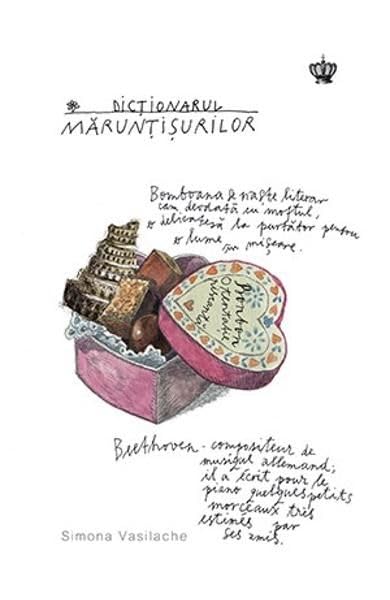 DICȚIONARUL
MĂRUNȚIȘURILOR
Bomboana se naște literar
cam deodată cu moftul,
o delicatesă la purtător pentru
o lume în mișcare.
Bonbon
Orientații
Beethoven - compositeur de
musique allemand;
il a écrit pour le
piano quelques petits
morceaux très
estimés par
ses amis.
Simona Vasilache